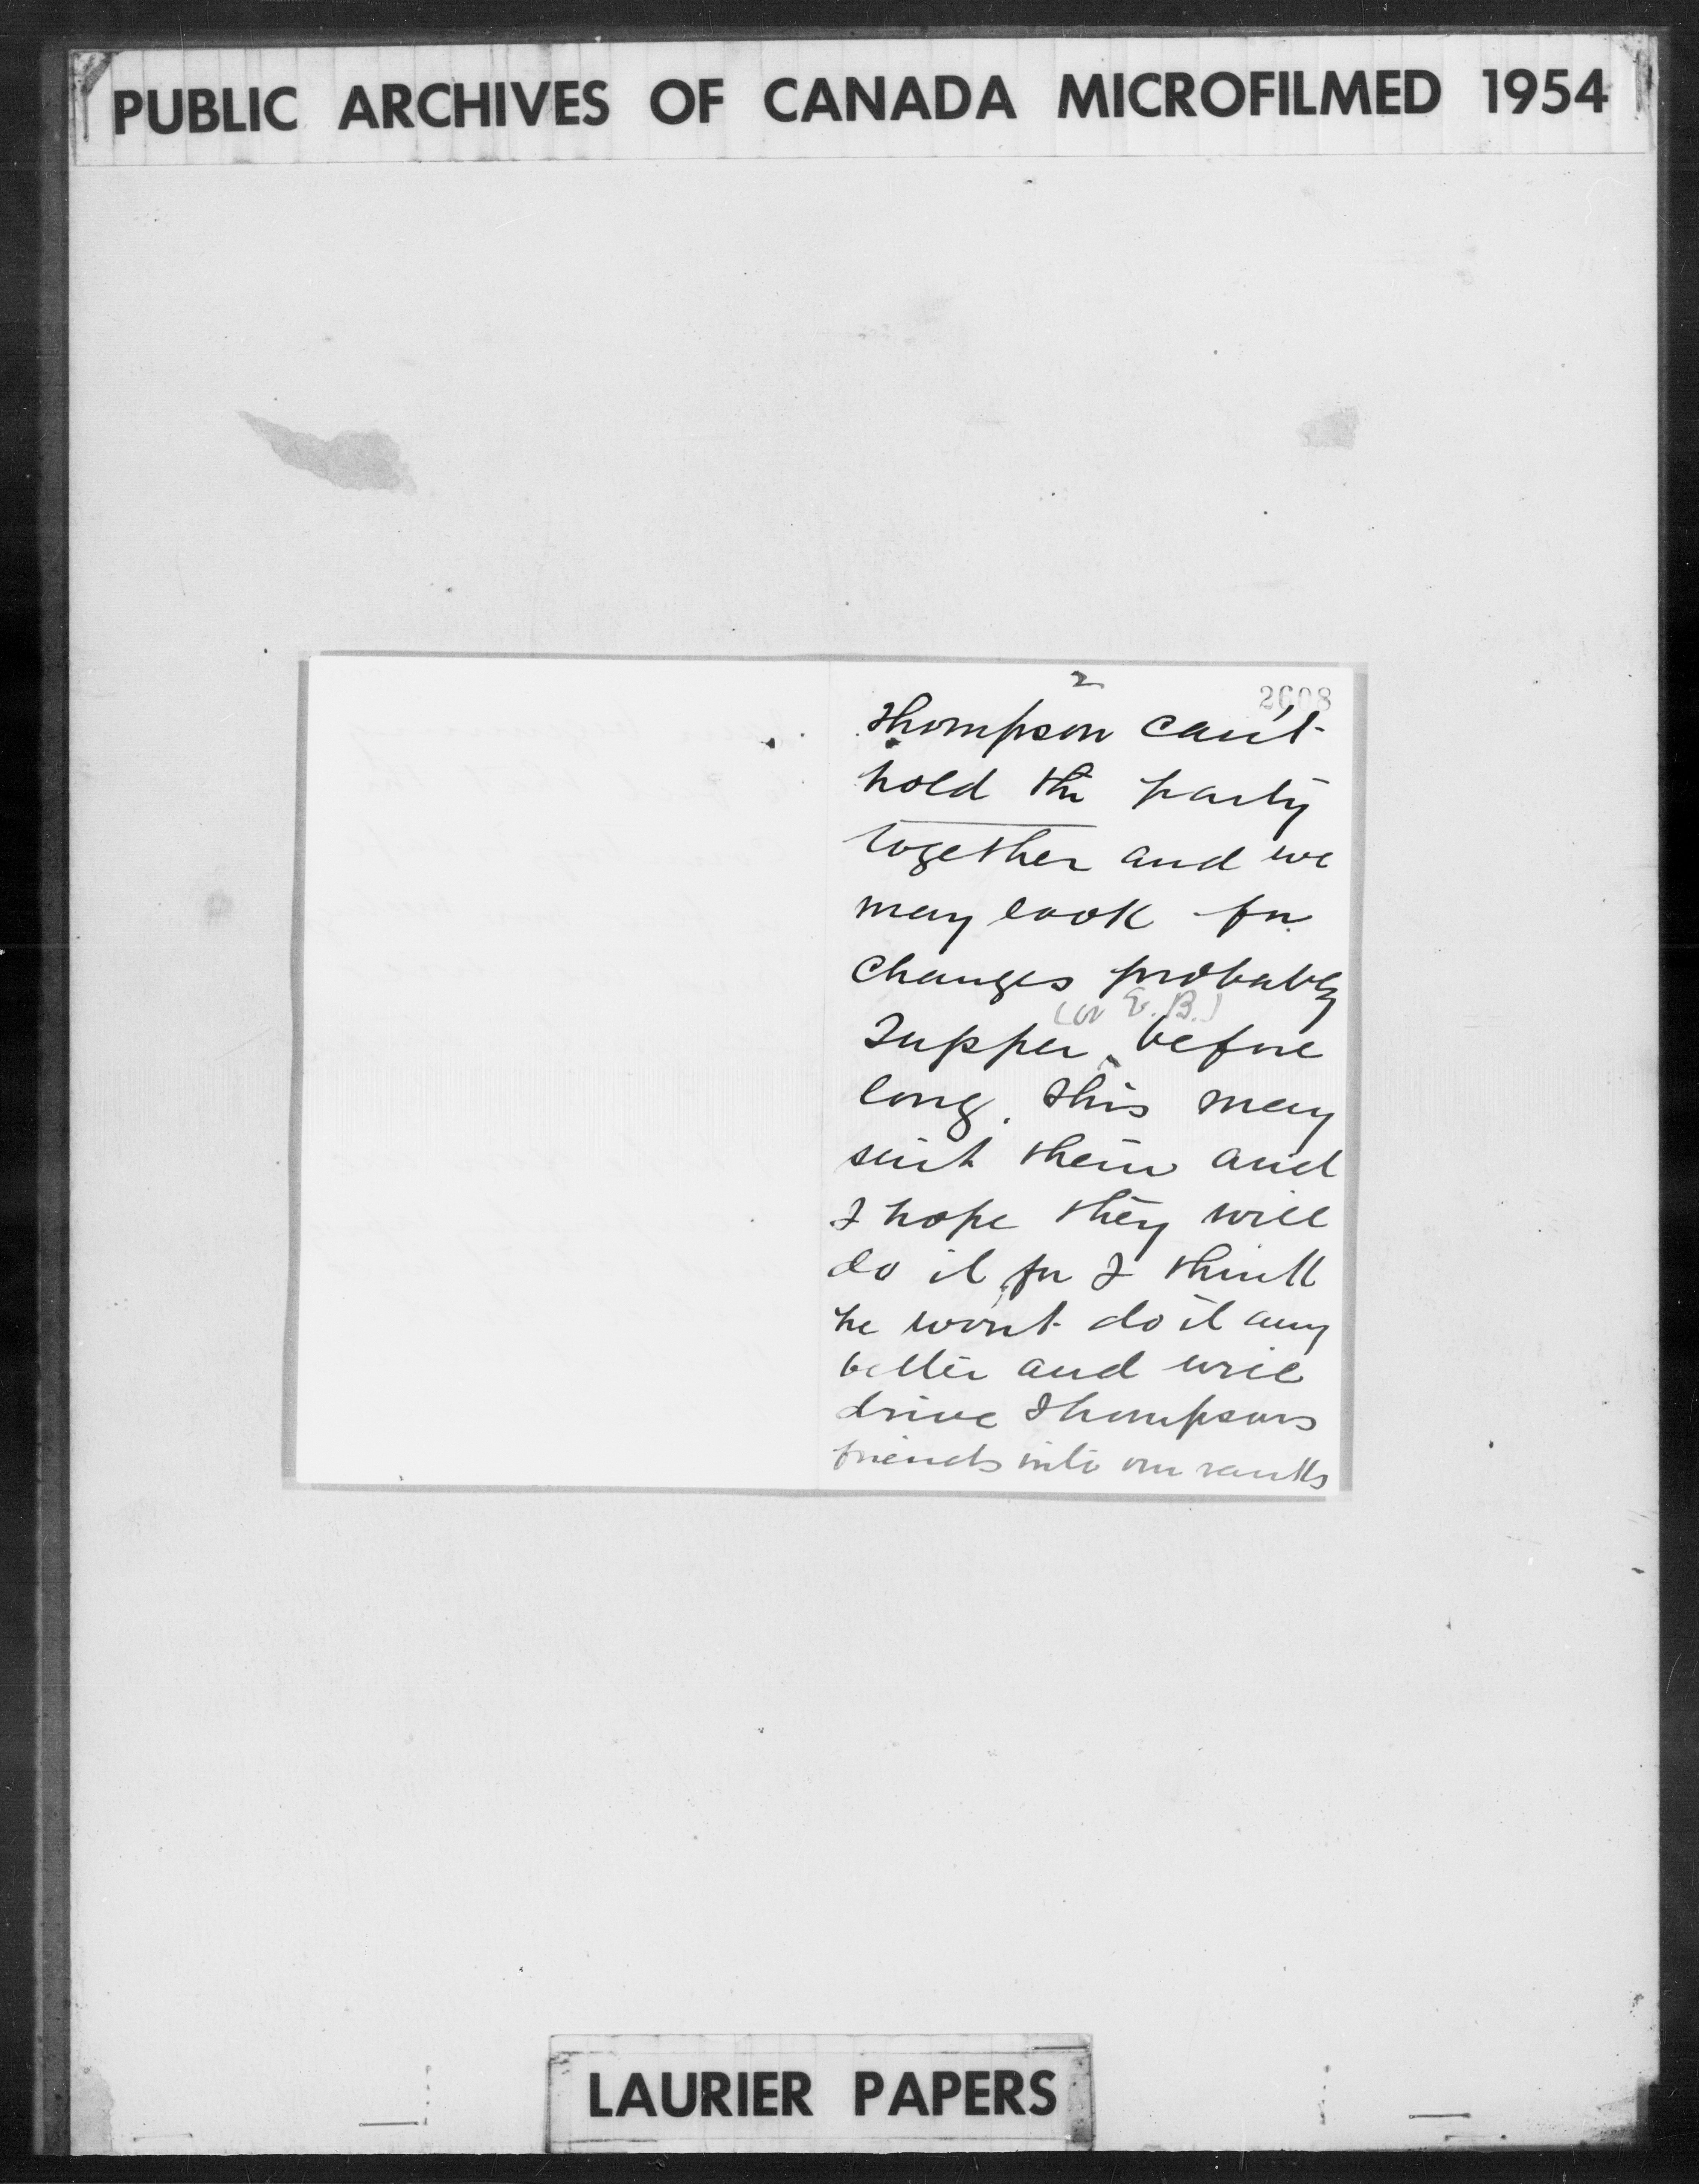 PUBLIC ARCHIVES OF CANADA MICROFILMED 1954
2
2608
Thompson can't
hold the party
together and we
may look for
changes probably
(or E.B.)
Tupper before
long. This may
suit them and
I hope they will
do it for I think
he won't do it any
better and will
drive Thompsons
friends into our ranks
LAURIER PAPERS